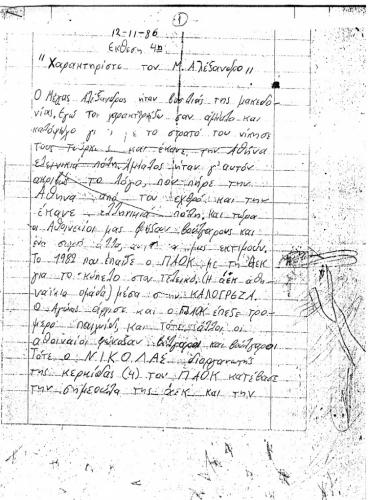 1
12-11-86
Εκθεση 4η
"Χαρακτηρίστε τον Μ. Αλέξανδρο"
Ο Μέγας Αλέξανδρος ήταν βασιλιάς της μακεδο-
νίας. Εγώ τον χαρακτηρίζω σαν και
το στρατό του νίκησε
τους και έκανε την Αθήνα
ελληνική πόλη. ήταν γι' αυτόν
ακριβώς το λόγο, που πήρε την
Αθήνα από τον εχθρό και την
έκανε ελληνικιά πόλη, και τώρα
οι Αθηναίοι μας φωνάζουν βούλγαρους και
ένα μας εκτιμούν.
Το 1982 που έπαιζε ο ΠΑΟΚ με την ΑΕΚ
για το κύπελλο στον τελικό, (η αεκ αθη-
ναϊκια ομάδα) μέσα στην ΚΑΛΟΓΡΕΖΑ.
Ο Αγώνας άρχισε και ο ΠΑΟΚ έπεξε τρο-
μερό παιχνίδι, και τότε οι
αθηναίοι φώναζαν βούλγαροι και βούλγαροι
Τότε ο Ν.Ι.Κ.Ο.Λ.Α.Σ. διοργανωτής
της κερκίδας (4) του ΠΑΟΚ κατέβασε
την σημεούτα της αεκ και την